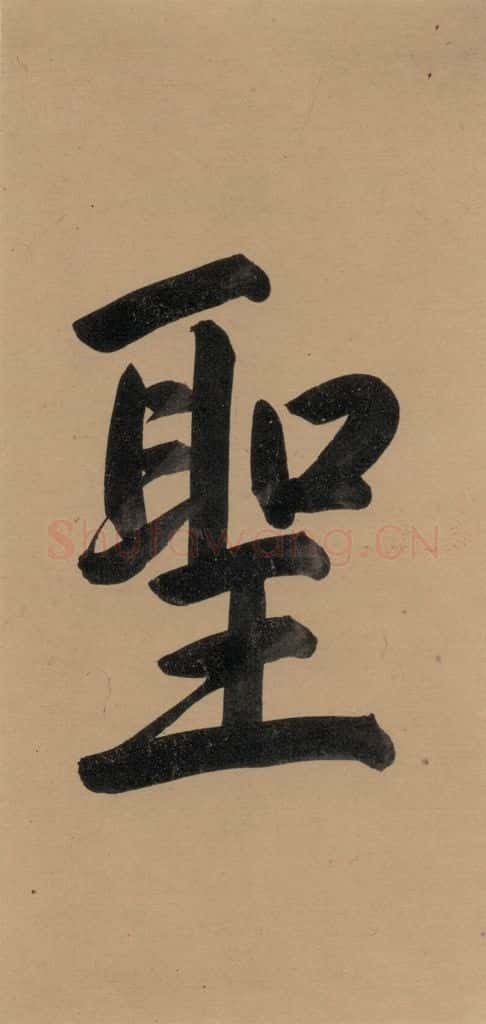 聖
Shufawang.CN